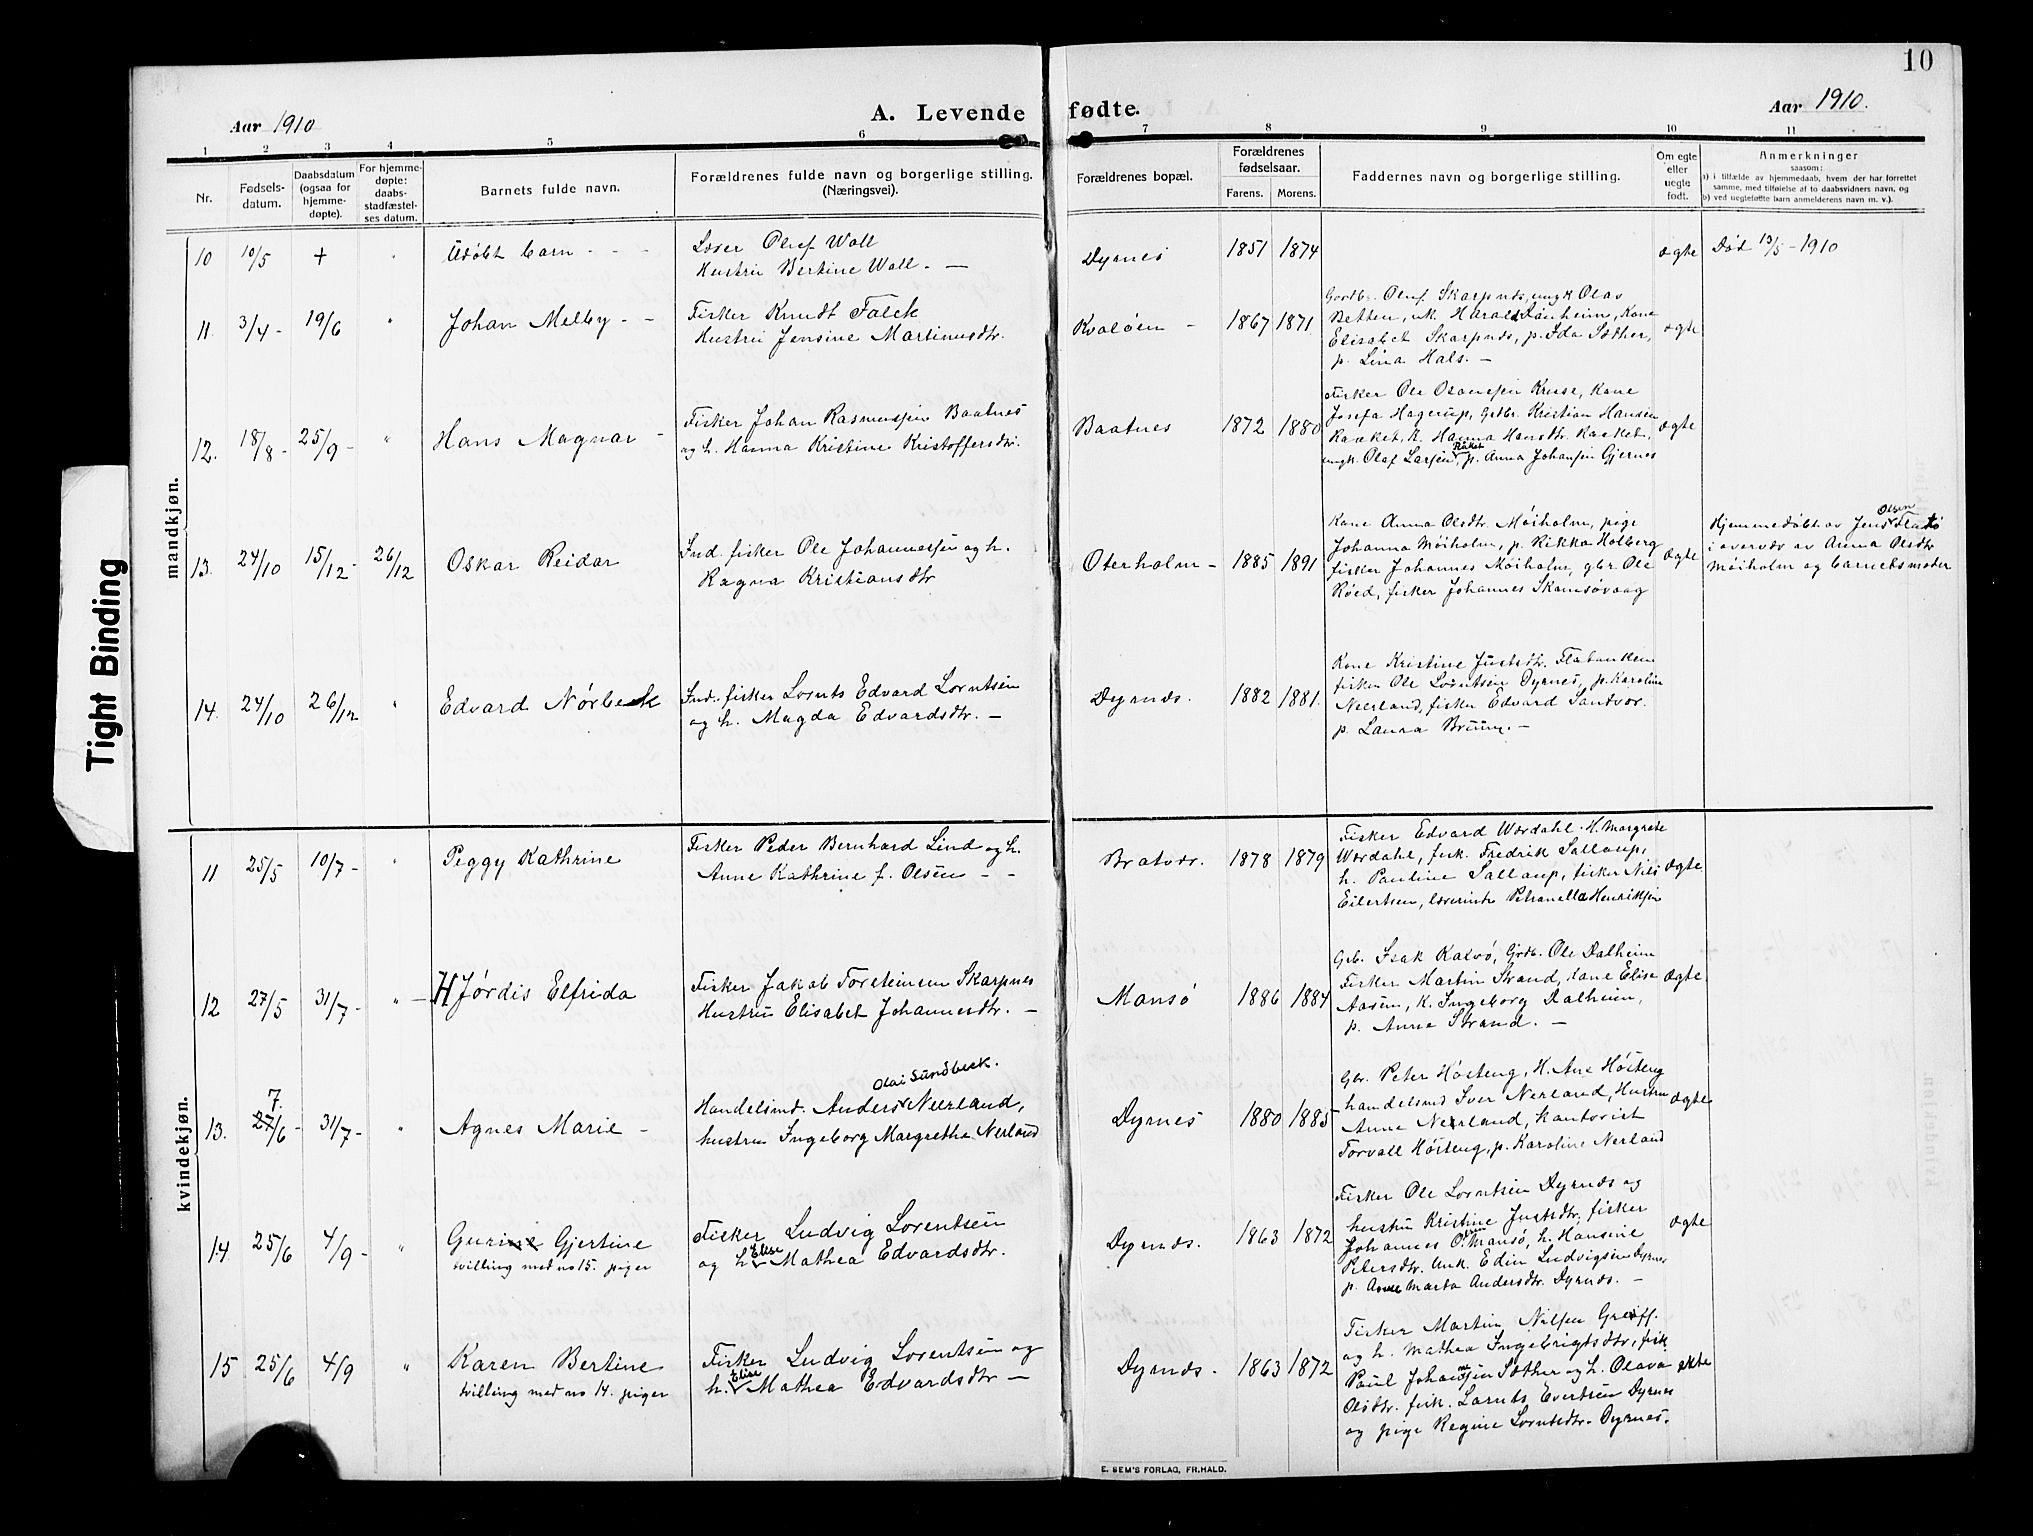 10
Aar 1910
A. Levende fødte.
Aar 1910.
1 2 3 4 5 6 7 8 9 10 11
Nr.
Fødsels-
datum.
Daabsdatum
(ogsaa for
hjemme-
døpte).
For hjemme-
døpte:
daabs-
stadfæstel-
ses datum.
Barnets fulde navn.
Forældrenes fulde navn og borgerlige stilling.
(Næringsvei).
Forældrenes bopæl.
Forældrenes
fødselsaar.
Farens. Morens.
Faddernes navn og borgerlige stilling.
Om egte
eller
uegte
født.
Anmerkninger
saasom:
a) i tilfælde av hjemmedaab, hvem der har forrettet
samme, med tilføielse af to daabsvidners navn, og
b) ved uegtefødte barn anmelderens navn m. v.).
Tight Binding
mandkjøn.
10 10/5 + " Udøbt barn - - -
Olaf Wall
Hustru Bertine Wall. —
Dyrnes 1851 1874
ægte
Død 13/5 - 1910
11. 3/4 - 19/6 " Johan Melby - -
Fisker Knudt Falck
Hustru Jensine Martinusdtr.
Kvaløen - 1867 1871
Gordbr. Oluf Skarpnæs, ungk Olav
Betten, uk Harald Dønheim, Kone
Elisabet Skarpnæs, p. Ida Sæther,
p. Lina Hals. —
ægte
12. 18/8 - 25/9 - " Hans Magnar -
Fisker Johan Rasmussen Baatnes
og h. Hanna Kristine Kristoffersdtr.
Baatnes 1872 1880
Fisker Ole Kruse, Kone
Josefa Hagerup, Grbr. Kristian Hansen
Raaket, K. Hanna Hansdtr. Raaket,
ungk. Olaf Larsen Råket, p. Anna Johansen Gjernes
ægte
13. 24/10 15/12 - 26/12 Oskar Reidar
Ind. fisker Ole Johannessen og h.
Ragna Kristiansdtr
Oterholm - 1885 1891
Kone Anna Olsdtr. Møiholm, pige
Johanna Møiholm, p. Rikka Holberg
fisker Johannes Møiholm, gbr. Ole
Røed, fisker Johannes Skomsøvaag
ægte
Olsen
Hjemmedøbt av Jens
i overvær av Anna Olsdtr
Møiholm og barnets moder
14. 24/10 26/12 " Edvard Nørbeck
Ind. fisker Lornts Edvard Lorntsen
og h. Magda Edvardsdtr. —
Dyrnæs. 1882 1881.
Kone Kristine Justsdtr. Flatanken
fisker Ole Lorntsen Dyrnes, p. Karoline
Neerland, fisker Edvard Sandvær.
p. Laura Bruun. —
kvindekjøn.
11 25/5 10/7 - " Peggy Kathrine
Fisker Peder Bernhard Lind og h.
Anne Kathrine f. Olsen - -
Bratvær. 1878 1879
Fisker Edvard Wærdahl. H. Margrete
Wærdahl, fisk. Fredrik Sallaup,
h. Pauline Sallaup, fisker Nils
Eilertsen, lærerinde Petranella Henriksen
ægte
12 27/5 31/7 - " — Hjørdis Elfrida
Fisker Jakob Torsteinsen Skarpnes
Hustru Elisabet Johannesdtr. —
Mansø 1886 1884
Grb. Isak Kalvø, Grdb. Ole Dalheim
Fisker Martin Strand, kone Elise
Aasen, K. Ingeborg Dalheim,
p. Anne Strand. —
ægte
13. 7. 27/6 - 31/7 - " Agnes Marie -
Olai Sundbeck.
Handelsmd. Anders Neerland,
hustru Ingeborg Margretha Nerland
Dyrnes 1880 1885
Gbr. Peter Høsteng, H. Ane Høsteng
handelsmd Iver Nerland, Hustru
Anne Nerland, kantorist
Torvall Høsteng, p. Karoline Nerland
ægte
14 25/6 4/9 - " Gurine Gjertine
tvilling med no 15. piger
Fisker Ludvig Lorentsen
og h. Elise Mathea Edvardsdtr.
Dyrnæs. 1863 1872
Fisker Ole Lorntsen Dyrnæs og
hustru Kristine Justsdtr, fisker
Johannes Olsen Mansø, h. Hansine
Petersdtr. Unk. Edin Ludvigsen Dyrnes
p. Anne Marta Andersdtr. Dyrnæs. —
ægte
15 25/6 4/9 " Karen Bertine
tvilling med no 14. piger
Fisker Ludvig Lorentsen og
h. Elise Mathea Edvardsdtr —
Dyrnæs. 1863 1872
Fisker Martin Nilsen Greiff.
og h. Mathea Ingebrigtsdtr, fisk
Paul Johansen Sæther og h. Olava
Olsdtr. fisk. Lornts Evertsen Dyrnes
og pige Regine Lorntsdtr. Dyrnes.
ekte
E. SEM'S FORLAG, FR.HALD.